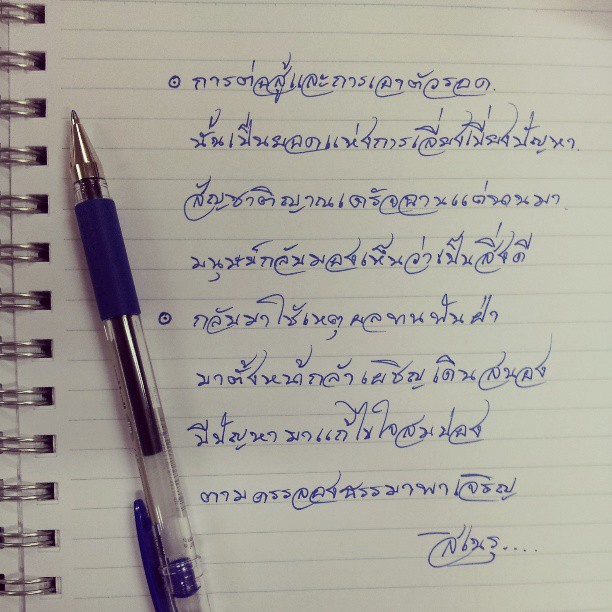 ๏ การต่อสู้และการเอาตัวรอด.
นั้นเป็นยอดแห่งการเลี่ยงเบี่ยงปัญหา.
สัญชาติญาณเดรัจฉานแต่นานมา.
มนุษย์กลับมองเห็นว่าเป็นสิ่งดี
๏ กลับมาใช้เหตุผลทนฟันฝ่า
มาตั้งหน้ากล้าเผชิญเดินสนอง
มีปัญหามาแก้ไขใจสมปอง
ตามครรลองธรรมาพาเจริญ
สิเนรุ....